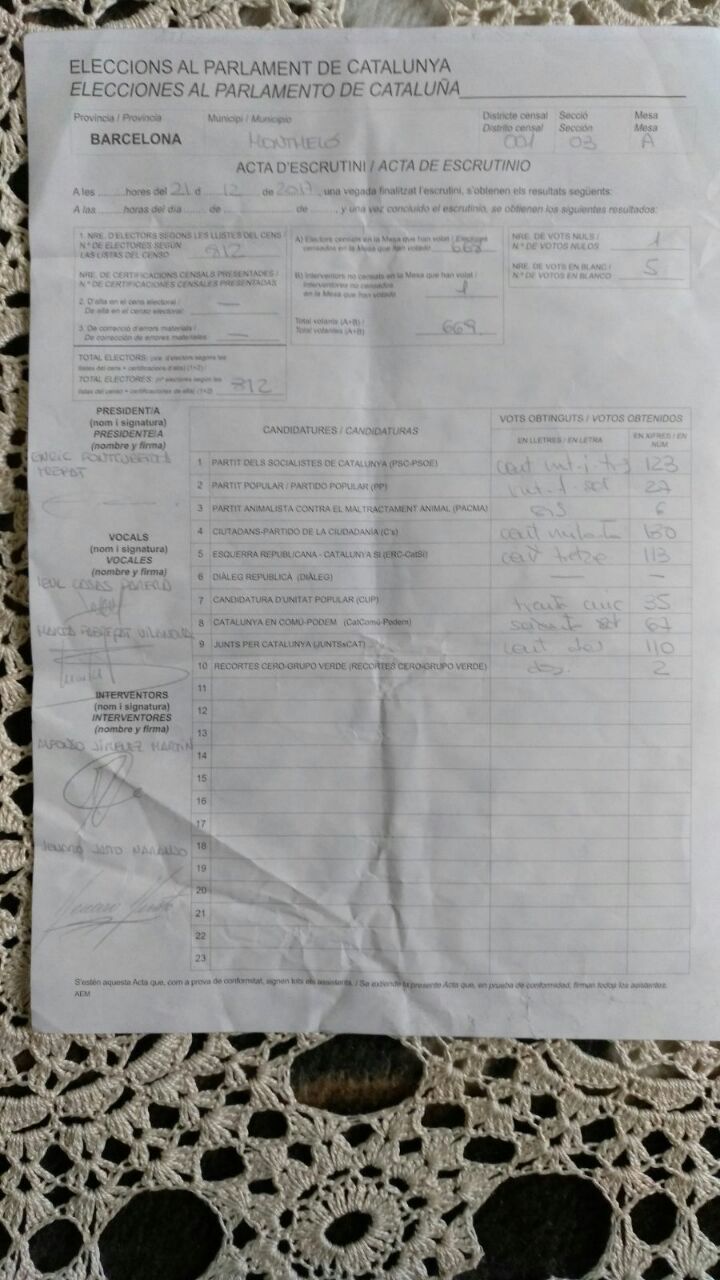 ELECCIONS AL PARLAMENT DE CATALUNYA
ELECCIONES AL PARLAMENTO DE CATALUÑA
Provincia / Provincia Municipi / Municipio Districte censal Secció Mesa
Distrito censal Sección Mesa
BARCELONA MONTMELÓ 001 03 A
ACTA D'ESCRUTINI / ACTA DE ESCRUTINIO
A les ........ hores del 21 d ..... 12 ..... de 2017, una vegada finalitzat l'escrutini, s'obtenen els resultats següents:
A las ........ horas del día ........ de ........ de ........, y una vez concluido el escrutinio, se obtienen los siguientes resultados:
1. NRE. D'ELECTORS SEGONS LES LLISTES DEL CENS /
N.º DE ELECTORES SEGÚN
LAS LISTAS DEL CENSO 812
NRE. DE CERTIFICACIONS CENSALS PRESENTADES /
N.º DE CERTIFICACIONES CENSALES PRESENTADAS
2. D'alta en el cens electoral /
De alta en el censo electoral —
3. De correcció d'errors materials /
De corrección de errores materiales —
TOTAL ELECTORS: (nre. d'electors segons les
llistes del cens + certificacions d'alta) (1+2) /
TOTAL ELECTORES: (nº electores según las
listas del censo + certificaciones de alta) (1+2) 812
A) Electors censats en la Mesa que han votat / Electores
censados en la Mesa que han votado 668
B) Interventors no censats en la Mesa que han votat /
Interventores no censados
en la Mesa que han votado 1
Total votants (A+B) /
Total votantes (A+B) 669
NRE. DE VOTS NULS /
N.º DE VOTOS NULOS 1
NRE. DE VOTS EN BLANC /
N.º DE VOTOS EN BLANCO 5
PRESIDENT/A
(nom i signatura)
PRESIDENTE/A
(nombre y firma)
ENRIC
VOCALS
(nom i signatura)
VOCALES
(nombre y firma)
INTERVENTORS
(nom i signatura)
INTERVENTORES
(nombre y firma)
ALFONSO JIMÉNEZ MARTÍN
NARANJO
CANDIDATURES / CANDIDATURAS VOTS OBTINGUTS / VOTOS OBTENIDOS
EN LLETRES / EN LETRA EN XIFRES / EN NUM
1 PARTIT DELS SOCIALISTES DE CATALUNYA (PSC-PSOE) cent vint-i-tres 123
2 PARTIT POPULAR / PARTIDO POPULAR (PP) vint-i-set 27
3 PARTIT ANIMALISTA CONTRA EL MALTRACTAMENT ANIMAL (PACMA) sis 6
4 CIUTADANS-PARTIDO DE LA CIUDADANÍA (C's) cent 180
5 ESQUERRA REPUBLICANA - CATALUNYA SÍ (ERC-CatSí) cent tretze 113
6 DIÀLEG REPUBLICÀ (DIÀLEG) — —
7 CANDIDATURA D'UNITAT POPULAR (CUP) trenta cinc 35
8 CATALUNYA EN COMÚ-PODEM (CatComú-Podem) seixanta set 67
9 JUNTS PER CATALUNYA (JUNTSxCAT) cent deu 110
10 RECORTES CERO-GRUPO VERDE (RECORTES CERO-GRUPO VERDE) dos. 2
11
12
13
14
15
16
17
18
19
20
21
22
23
S'estén aquesta Acta que, com a prova de conformitat, signen tots els assistents. / Se extiende la presente Acta que, en prueba de conformidad, firman todos los asistentes.
AEM